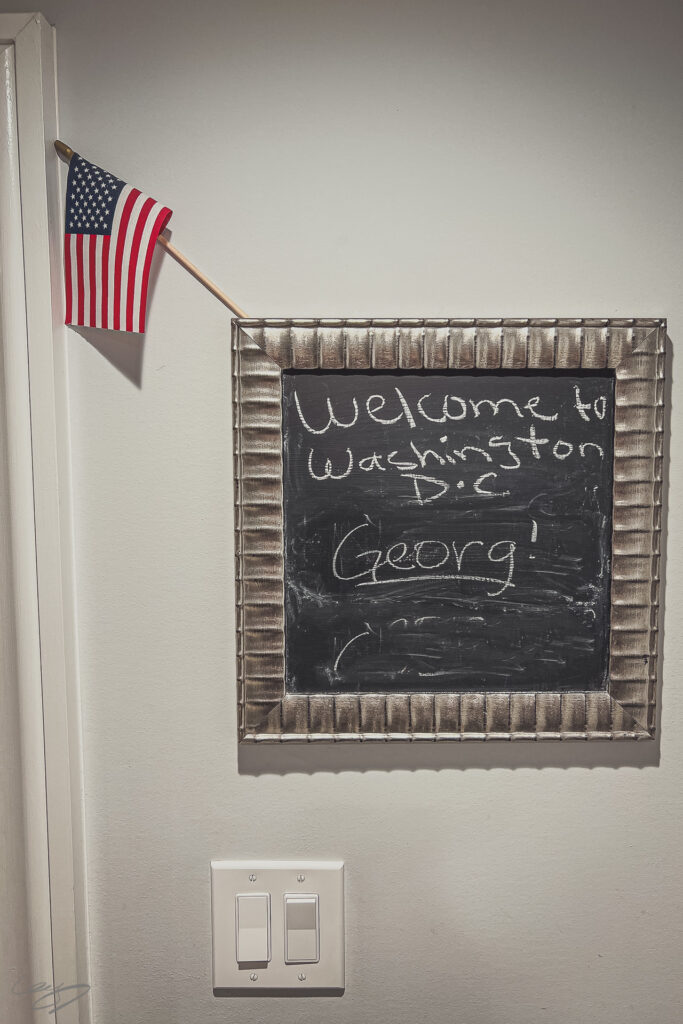 Welcome to
Washington
D.C
Georg!